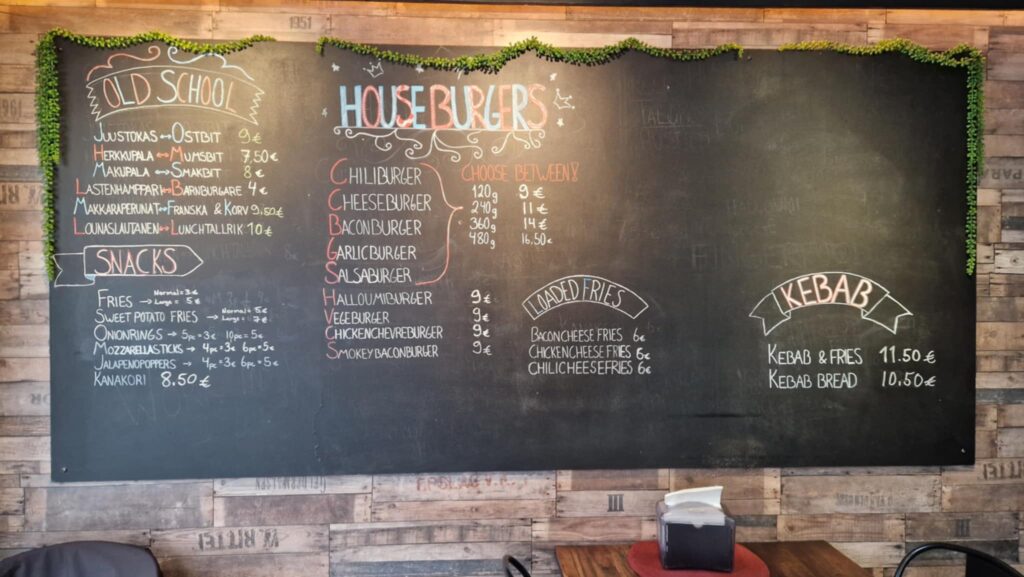 OLD SCHOOL
JUUSTOKAS ↔ OSTBIT 9€
HERKKUPALA ↔ MUMSBIT 7,50€
MAKUPALA ↔ SMAKBIT 8€
LASTENHAMPPARI ↔ BARNBURGARE 4€
MAKKARAPERUNAT ↔ FRANSKA & KORV 9,50€
LOUNASLAUTANEN ↔ LUNCHTALLRIK 10€
SNACKS
FRIES → Normal = 3€
Large = 5€
SWEET POTATO FRIES → Normal = 5€
Large = 7€
ONIONRINGS → 5pc=3€ 10pc=5€
MOZZARELLASTICKS → 4pc=3€ 6pc=5€
JALAPENOPOPPERS → 4pc=3€ 6pc=5€
KANAKORI 8.50€
HOUSE BURGERS
CHILIBURGER
CHEESEBURGER
BACONBURGER
GARLICBURGER
SALSABURGER
CHOOSE BETWEEN!
120g 9€
240g 11€
360g 14€
480g 16,50€
HALLOUMIBURGER 9€
VEGEBURGER 9€
CHICKENCHEVREBURGER 9€
SMOKEYBACONBURGER 9€
LOADED FRIES
BACONCHEESE FRIES 6€
CHICKENCHEESE FRIES 6€
CHILICHEESEFRIES 6€
KEBAB
KEBAB & FRIES 11.50€
KEBAB BREAD 10,50€
1951
III